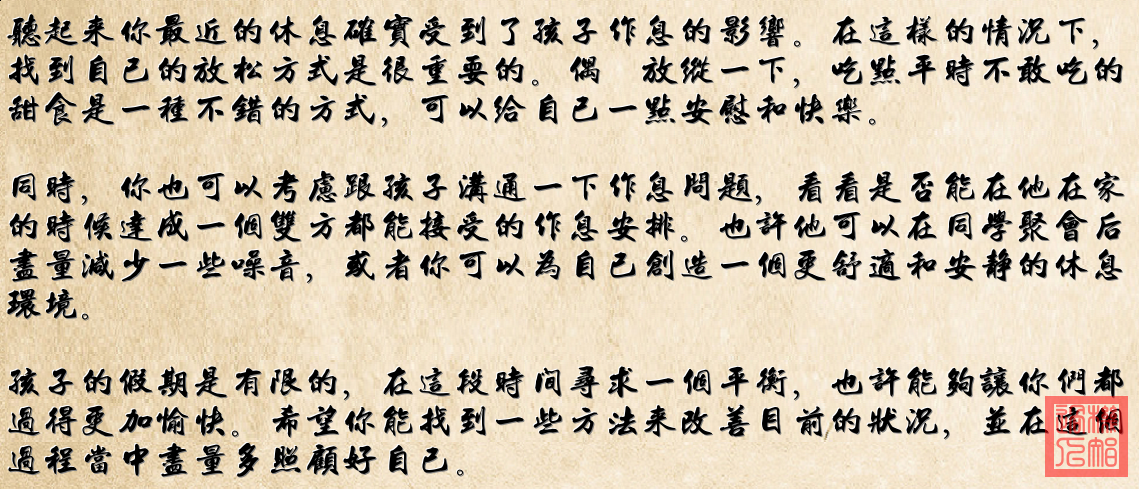 聽起来你最近的休息確實受到了孩子作息的影響。在這樣的情況下，
找到自己的放松方式是很重要的。偶 放縱一下，吃點平時不敢吃的
甜食是一種不錯的方式，可以給自己一點安慰和快樂。
同時，你也可以考慮跟孩子溝通一下作息問題，看看是否能在他在家
的時候達成一個雙方都能接受的作息安排。也許他可以在同學聚會后
盡量減少一些噪音，或者你可以為自己創造一個更舒適和安靜的休息
環境。
孩子的假期是有限的，在這段時間尋求一個平衡，也許能夠讓你們都
過得更加愉快。希望你能找到一些方法来改善目前的狀況，並在這個
過程當中盡量多照顧好自己。